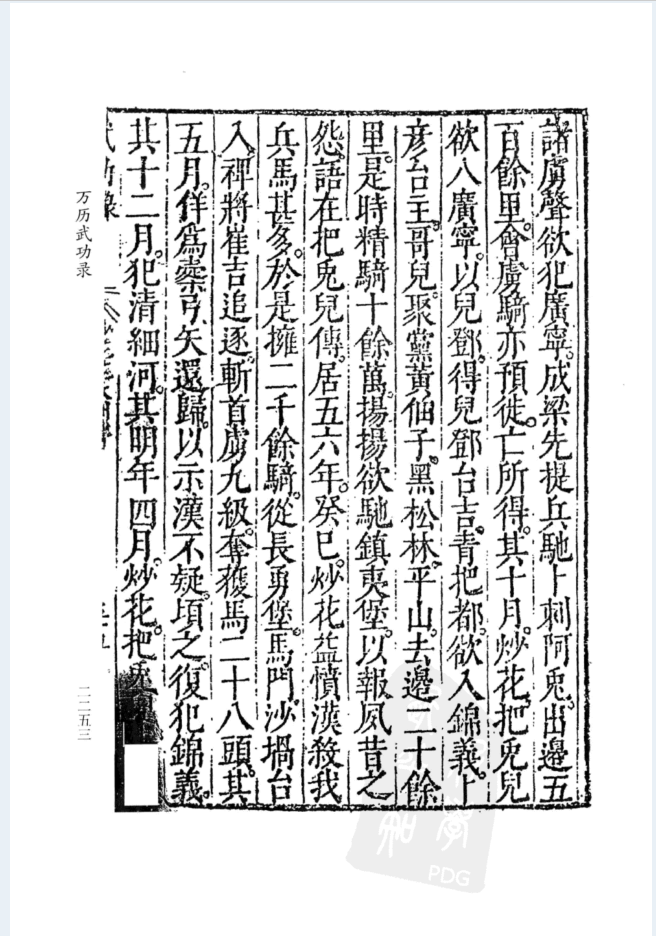 諸虜聲欲犯廣寧。成梁先提兵馳卜刺阿兎。出邊五
百餘里。會虜騎亦預徙。亡所得。其十月。炒花。把兎兒
欲入廣寧。以兒鄧。得兒鄧台吉。青把都。欲入錦義。卜
彦台主。哥兒。聚黨黃佃子。黑松林。平山。去邊二十餘
里。是時精騎十餘萬。揚揚欲馳鎮夷堡。以報夙昔之
怨。語在把兎兒傳。居五六年。癸巳。炒花益憤漢殺我
兵馬甚多。於是擁二千餘騎。從長勇堡。馬門。沙堝台
入。禆將崔吉追逐。斬首虜九級。奪獲馬二十八頭。其
五月。佯爲櫜弓矢還歸。以示漢不疑。頃之。復犯錦義。
其十二月。犯清細河。其明年四月。炒花。把兎
武功錄
万历武功录
二二五三
PDG